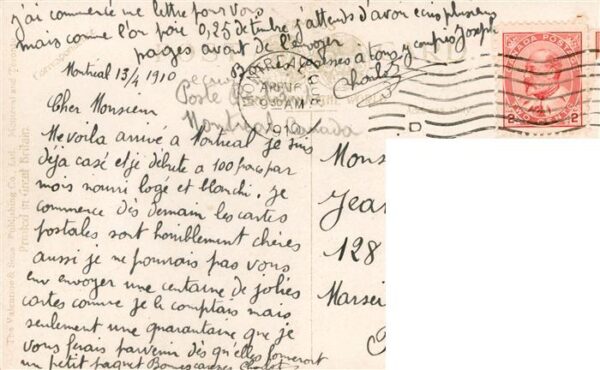 j'ai commencé une lettre pour vous
mais comme l'on paie 0,25 de timbre j'attends d'avoir ecris plusieurs
pages avant de l'envoyer
Bonnes caresses a tous y compris Joseph
Charlot
Montreal 13/4 1910
Ecrire
Poste
Montreal Canada
MONTREAL
APR 15
9 30 AM
1910
CANADA POSTAGE
2 2
Cher Monsieur
Me voila arrivé a Montreal je suis
déja casé et je débute a 100 f par
mois nourri logé et blanchi. Je
commence dès demain les cartes
postales sont horriblement chères
aussi je ne pourrais pas vous
env envoyer une centaine de jolies
cartes comme je le comptais mais
seulement une quarantaine que je
vous ferais parvenir dès qu'elles formeront
un petit paquet Bonnes caresses Charlot
Mons
Jean
128
Marsei
The Valentine & Sons Publishing Co.
Printed in Great Britain.